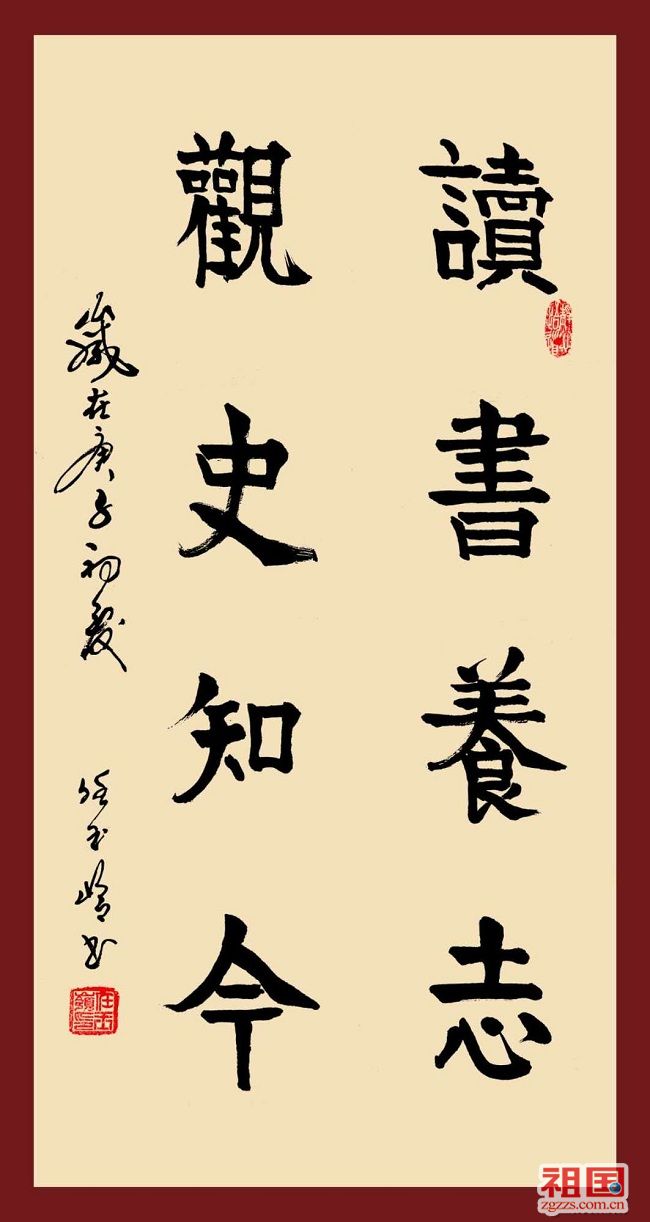 讀書養志
觀史知今
歲在庚子初夏
任玉嶺書
任玉嶺印
祖国
zgzzs.com.cn